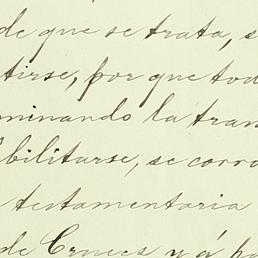 de que se trata, s
tirse, por que tod
minando la tran
bilitarse, se corro
testamentaria
de Cruces y á pa